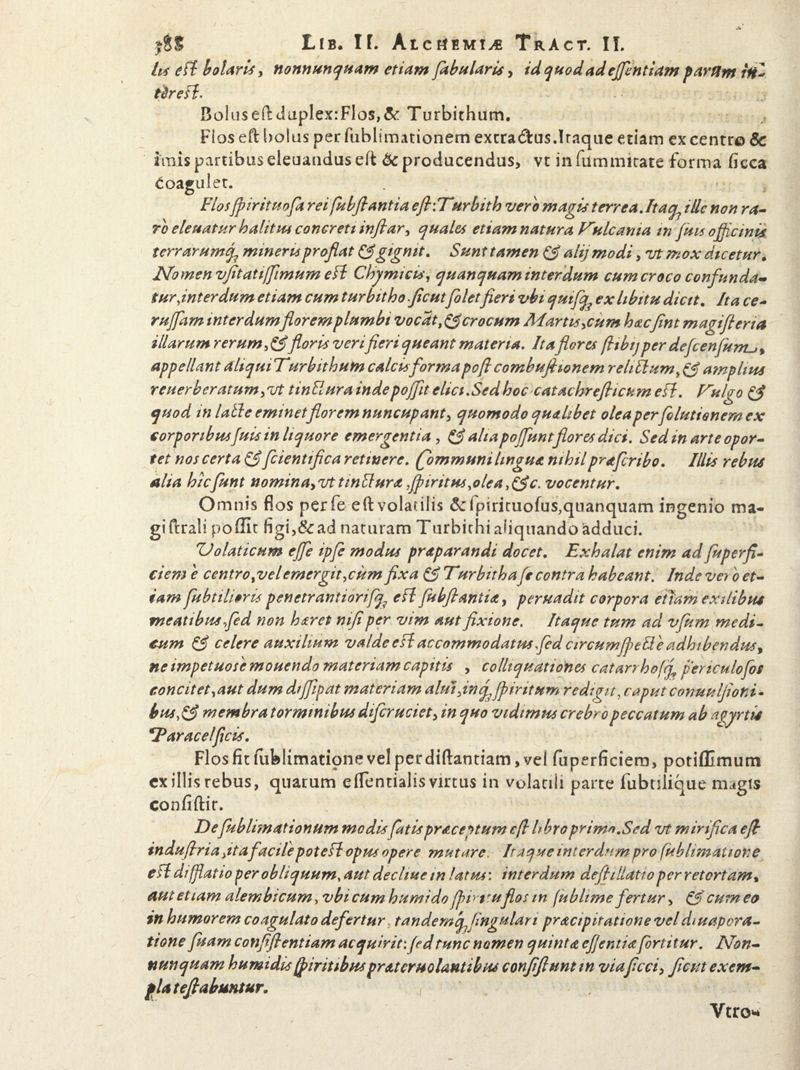 388 LIB. II. ALCHEMIÆ TRACT. II.
lus est bolaris, nonnunquam etiam fabularis, id quod ad essentiam parùm in-
terest.
Bolus est duplex: Flos, & Turbithum.
Flos est bolus per sublimationem extractus. Itaque etiam ex centro &
imis partibus eleuandus est & producendus, vt in summitate forma sicca
coagulet.
Flos spirituosa rei substantia est: Turbith vero magis terrea. Itaq; ille non ra-
rò eleuatur halitus concreti instar, quales etiam natura Vulcania in suis officinis
terrarumq; mineris proflat & gignit. Sunt tamen & alij modi, vt mox dicetur.
Nomen vsitatissimum est Chymicis, quanquam interdum cum croco confunda-
tur, interdum etiam cum turbitho sicut solet fieri vbi quisq; ex libitu dicit. Ita ce-
russam interdum florem plumbi vocāt, & crocum Martis, cum hæc sint magisteria
illarum rerum, & floris veri fieri queant materia. Ita flores stibij per descensum,
appellant aliqui Turbithum calcis forma post combustionem relictum, & amplius
reuerberatum, vt tinctura inde possit elici. Sed hoc catachresticum est. Vulgo &
quod in lacte eminet florem nuncupant, quomodo quælibet olea per solutionem ex
corporibus suis in liquore emergentia, & alia possunt flores dici. Sed in arte opor-
tet nos certa & scientifica retinere. Communi linguæ nihil præscribo. Illis rebus
alia hîc sunt nomina, vt tincturæ, spiritus, olea, &c. vocentur.
Omnis flos per se est volatilis & spirituosus, quanquam ingenio ma-
gistrali possit figi, & ad naturam Turbithi aliquando adduci.
Volaticum esse ipse modus præparandi docet. Exhalat enim ad superfi-
ciem è centro, vel emergit, cùm fixa & Turbitha se contra habeant. Inde vero et-
iam subtilioris penetrantiorisq; est substantiæ, peruadit corpora etiam exilibus
meatibus, sed non hæret nisi per vim aut fixione. Itaque tum ad vsum medi-
cum & celere auxilium valde est accommodatus, sed circumspectè adhibendus,
ne impetuosè mouendo materiam capitis, colliquationes catarrhosq; periculosos
concitet, aut dum dissipat materiam alui, inq; spiritum redigit, caput conuulsioni-
bus, & membra torminibus discruciet, in quo vidimus crebro peccatum ab agyrtis
Paracelsicis.
Flos fit sublimatione vel per distantiam, vel superficiem, potissimum
ex illis rebus, quarum essentialis virtus in volatili parte subtilique magis
consistit.
De sublimationum modis satis præceptum est libro primo. Sed vt mirifica est
industria, ita facilè potest opus opere mutare. Itaque interdum pro sublimatione
est difflatio per obliquum, aut decliue in latus: interdum destillatio per retortam,
aut etiam alembicum, vbi cum humido spiritu flos in sublime fertur, & cum eo
in humorem coagulato defertur, tandemq; singulari præcipitatione vel diuapora-
tione suam consistentiam acquirit: sed tunc nomen quintæ essentiæ sortitur. Non-
nunquam humidis spiritibus præteruolantibus consistunt in via sicci, sicut exem-
pla testabuntur.
Vtro-